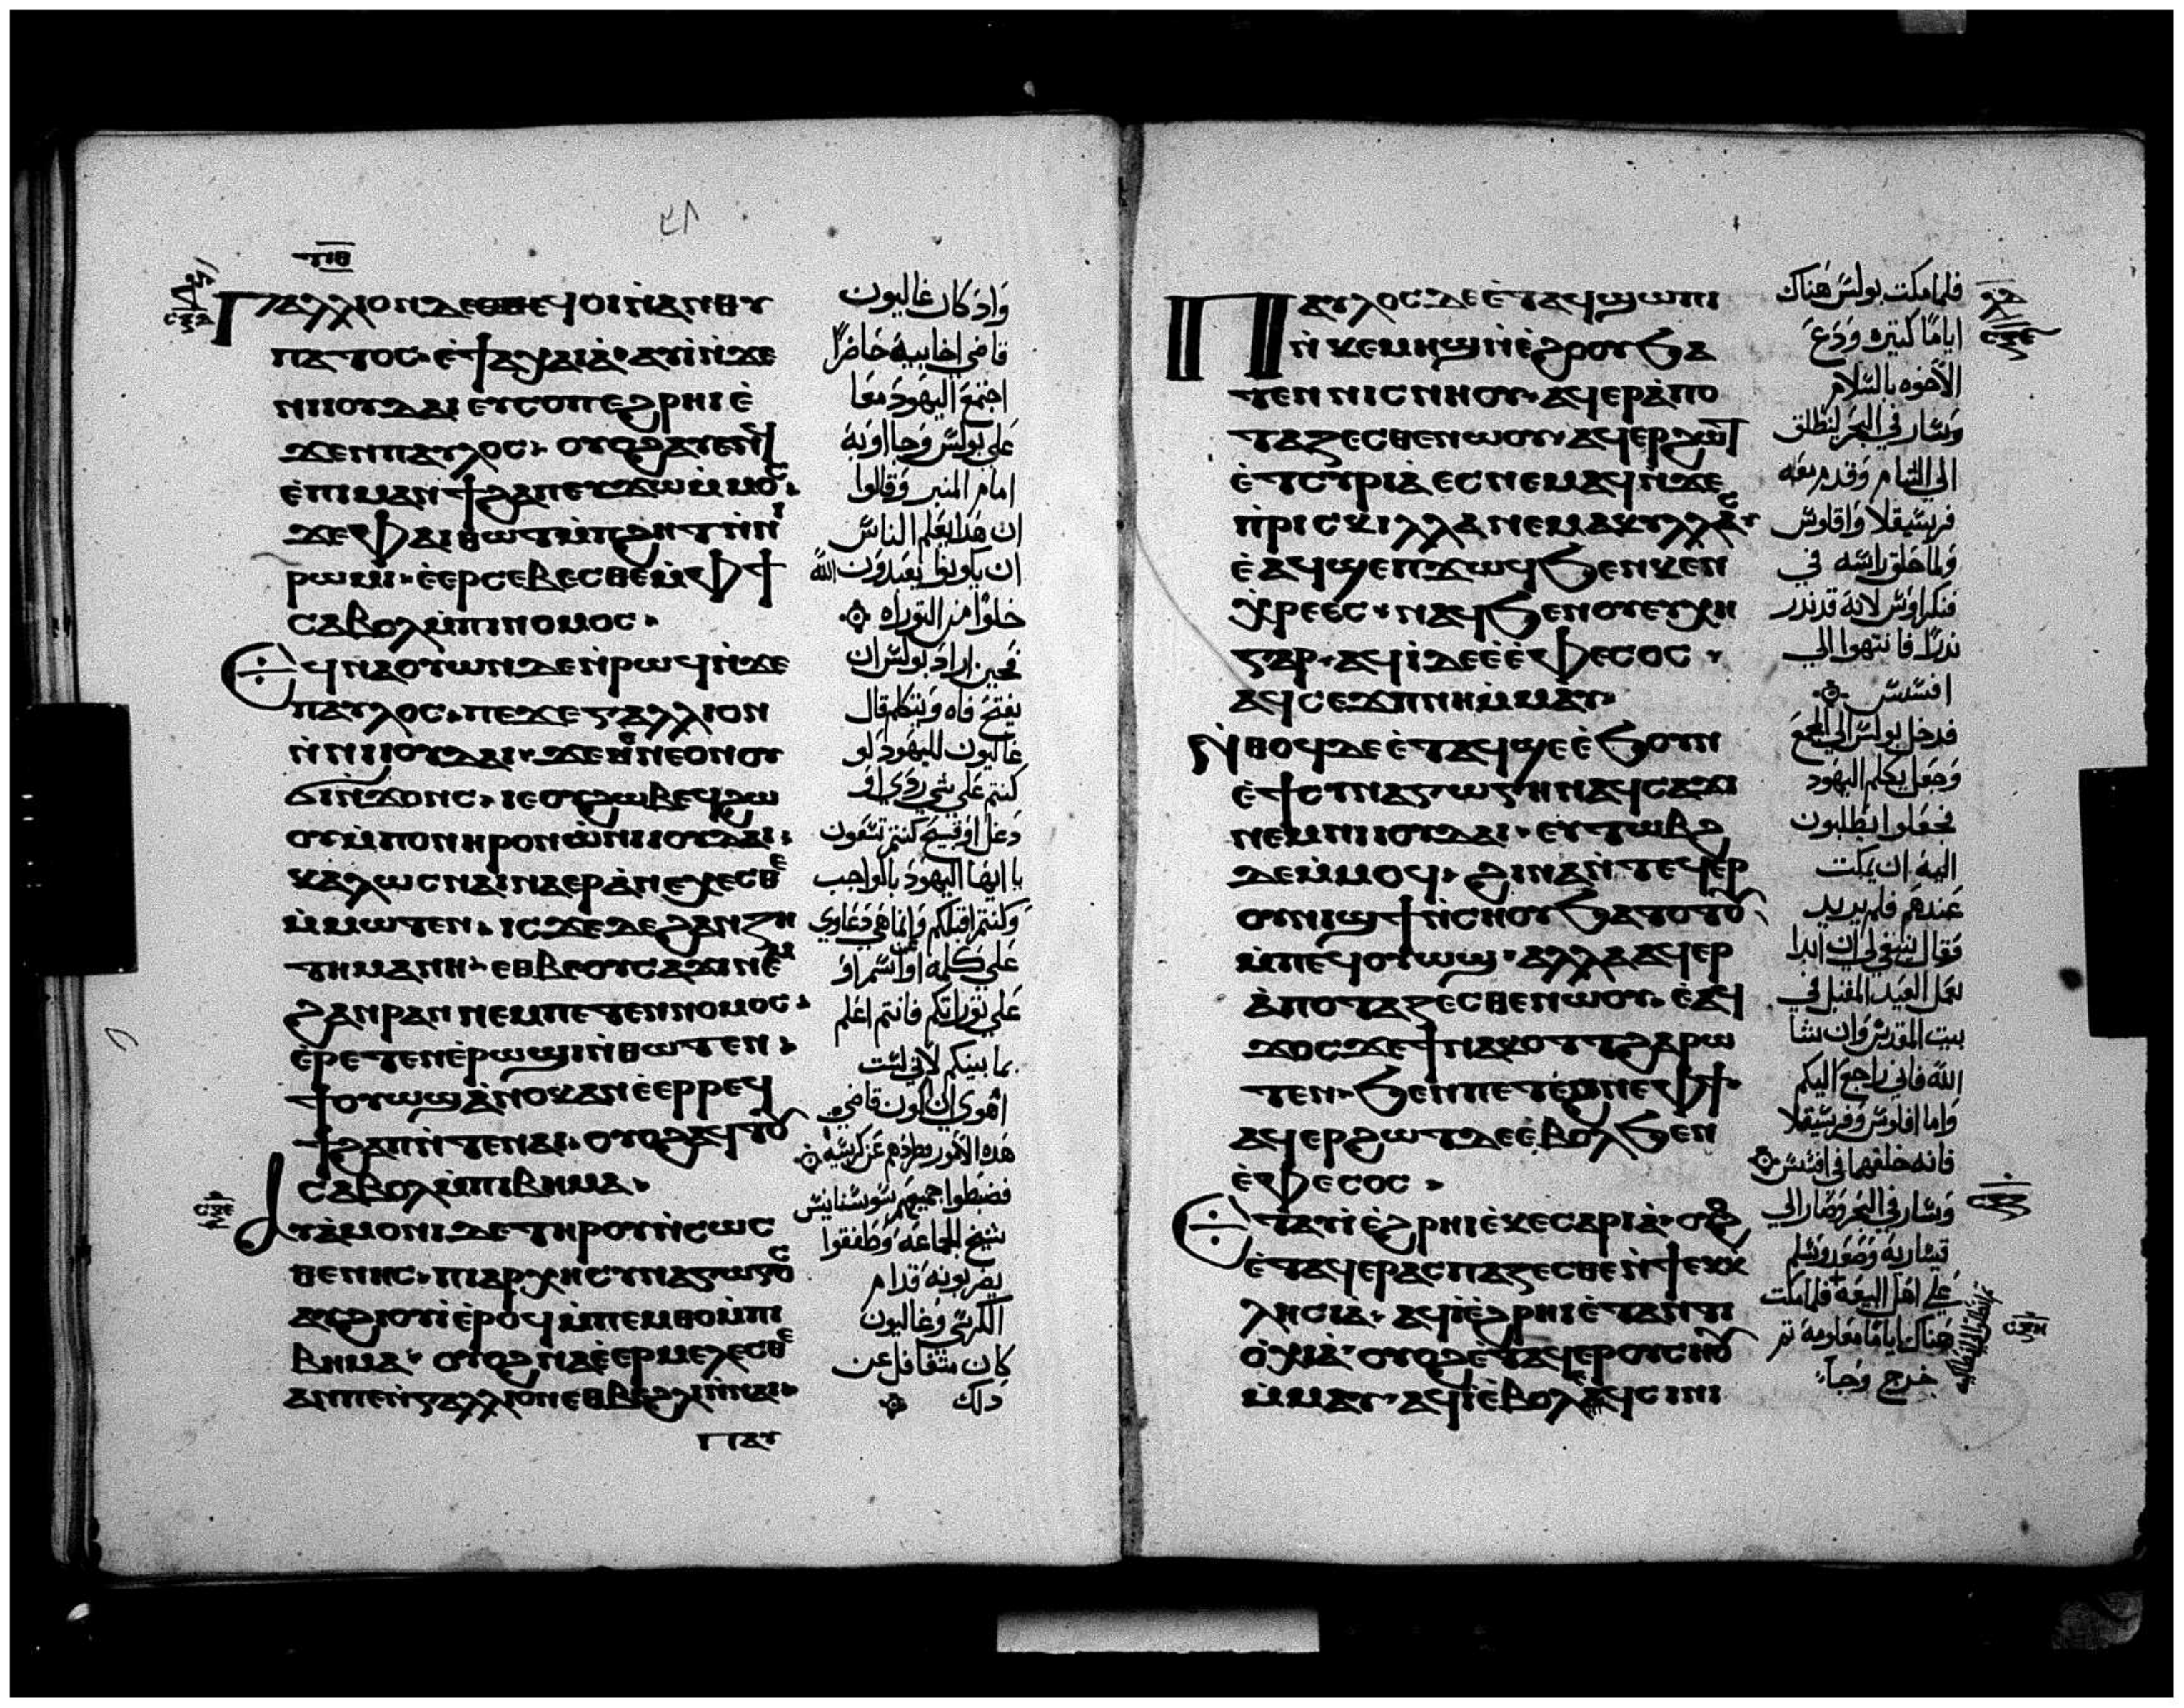 ⲅⲁⲗⲗⲓⲱⲛ ⲇⲉ ⲉϥⲟⲓ ⲛ̀ⲁⲛⲑⲩ
ⲡⲁⲧⲟⲥ ⲉ̀ϯⲁⲭⲁⲓⲁ̀ ⲁⲩⲓ̀ ⲛ̀ϫⲉ
ⲛⲓⲓⲟⲩⲇⲁⲓ ⲉⲩⲥⲟⲡ ⲉϩⲣⲏⲓ ⲉ̀
ϫⲉⲛ ⲡⲁⲩⲗⲟⲥ ⲟⲩⲟϩ ⲁⲩⲉⲛϥ
ⲉ̀ⲡⲓⲙⲁⲛϯϩⲁⲡ ⲉⲩϫⲱ ⲙ̀ⲙⲟⲥ
ϫⲉ ⲫⲁⲓ ⲑⲱⲧ ⲙ̀ⲡϩⲏⲧ ⲛ̀ⲛⲓ
ⲣⲱⲙⲓ ⲉ̀ⲉⲣⲥⲉⲃⲉⲥⲑⲉ ⲙ̀ⲫϯ
ⲥⲁⲃⲟⲗ ⲙ̀ⲡⲓⲛⲟⲙⲟⲥ
ⲉϥⲛⲁⲟⲩⲱⲛ ⲇⲉ ⲛ̀ⲣⲱϥ ⲛ̀ϫⲉ
ⲡⲁⲩⲗⲟⲥ ⲡⲉϫⲉ ⲅⲁⲗⲗⲓⲟⲛ
ⲛ̀ⲛⲓⲓⲟⲩⲇⲁⲓ ϫⲉ ⲉⲛⲉ ⲟⲛ ⲟⲩ
ϭⲓⲛ̀ϫⲟⲛⲥ ⲓⲉ ⲟⲩϩⲱⲃ ⲉϥϩⲱ
ⲟⲩ ⲙ̀ⲡⲟⲛⲏⲣⲟⲛ ⲱ̀ ⲛⲓⲓⲟⲩⲇⲁⲓ
ⲕⲁⲗⲱⲥ ⲛⲁⲓⲛⲁⲉⲣⲁⲛⲉⲭⲉⲥⲑⲉ
ⲙ̀ⲙⲱⲧⲉⲛ ⲓⲥϫⲉ ⲇⲉ ϩⲁⲛⲍⲏ
ⲧⲏⲙⲁ ⲛⲏ ⲉⲑⲃⲉ ⲟⲩⲥⲁϫⲓ ⲛⲉⲙ
ϩⲁⲛⲣⲁⲛ ⲛⲉⲙ ⲡⲉⲧⲉⲛⲛⲟⲙⲟⲥ
ⲉ̀ⲣⲉⲧⲉⲛⲉ̀ⲣⲱϣⲓ ⲛ̀ⲑⲱⲧⲉⲛ
ϯⲟⲩⲱϣ ⲁ̀ⲛⲟⲕ ⲁⲛ ⲉ̀ⲉⲣⲣⲉϥ
ϯϩⲁⲡ ⲛ̀ⲧⲉ ⲛⲁⲓ ⲟⲩⲟϩ ⲁϥϩⲓⲧⲟⲩ
ⲥⲁⲃⲟⲗ ⲙ̀ⲡⲓⲃⲏⲙⲁ
ⲁⲩⲁ̀ⲙⲟⲛⲓ ⲇⲉ ⲧⲏⲣⲟⲩ ⲛ̀ⲥⲱⲥ
ⲑⲉⲛⲏⲥ ⲡⲓⲁⲣⲭⲏⲥⲩⲛⲁⲅⲱⲅⲟⲥ
ⲁⲩϩⲓⲟⲩⲓ̀ ⲉ̀ⲣⲟϥ ⲙ̀ⲡⲉⲙⲑⲟ ⲙ̀ⲡⲓ
ⲃⲏⲙⲁ ⲟⲩⲟϩ ⲛⲁⲥⲉⲣⲙⲉⲗⲉⲥⲑⲉ
ⲁⲛ ⲡⲉ ⲛ̀ⲅⲁⲗⲗⲓⲟⲛ ⲉⲑⲃⲉ ϩⲗⲓ ⲛ̀ⲛⲁⲓ
ⲡⲁⲩ
واذ كان غاليون
قاضي اخاييه حاضرًا
اجتمع اليهود معا
على بولس وجاوا به
امام المنبر وقالوا
ان هذا يعلم الناس
ان يكونوا يعبدون الله
خلوا من التوراه
فحين اراد بولس ان
يفتح فاه ويتكلم قال
غاليون لليهود لو
كنتم على شي ردي او
دغل او قبيح كنتم تشعون
يا ايها اليهود بالواجب
وكنت اقبلكم وانما هي دعاوي
على كلمه او اسم او
على توراتكم فانتم اعلم
بما بينكم لاني لست
اهوي ان اكون قاضي
هذه الامور وطردهم عن كرسيه
فضبطوا جميعهم سوستنايس
شيخ الجماعه وطفقوا
يضربونه قدام
الكرسي وغاليون
كان متغافل عن
ذلك
ⲡⲁⲩⲗⲟⲥ ⲇⲉ ⲉ̀ⲧⲁϥϣⲱⲡⲓ
ⲛ̀ⲕⲉⲙⲏϣ ⲛ̀ⲉ̀ϩⲟⲟⲩ ϧⲁ
ⲧⲉⲛ ⲛⲓⲥⲛⲏⲟⲩ ⲁϥⲉⲣⲁ̀ⲡⲟ
ⲧⲁⲍⲉⲥⲑⲉ ⲛⲱⲟⲩ ⲁϥⲉⲣϩⲱⲧ
ⲉ̀ⲧⲥⲩⲣⲓⲁ̀ ⲉⲥⲛⲉⲙⲁϥ ⲛ̀ϫⲉ
ⲡ̀ⲣⲓⲥⲕⲓⲗⲗⲁ ⲛⲉⲙ ⲁⲕⲩⲗⲗⲁⲥ
ⲉ̀ⲁϥϣⲉⲡ ϫⲱϥ ϧⲉⲛ ⲕⲉⲛ
ⲭⲣⲉⲉⲥ ⲛⲁϥϧⲉⲛ ⲟⲩⲉⲩⲭⲏ
ⲅⲁⲣ ⲁϥⲓ̀ ⲇⲉ ⲉ̀ⲉ̀ⲫⲉⲥⲟⲥ
ⲁϥⲥⲉϫⲡ ⲛⲏ ⲙ̀ⲙⲁⲩ
ⲛ̀ⲑⲟϥ ⲇⲉ ⲉ̀ⲧⲁϥϣⲉ ⲉ̀ϧⲟⲩⲛ
ⲉ̀ϯⲥⲩⲛⲁⲅⲱⲅⲏ ⲛⲁϥⲥⲁϫⲓ
ⲛⲉⲙ ⲛⲓⲓⲟⲩⲇⲁⲓ ⲉⲩⲧⲱⲃϩ
ⲇⲉ ⲙ̀ⲙⲟϥ ϩⲓⲛⲁ ⲛ̀ⲧⲉϥⲉⲣ
ⲟⲩⲛⲓϣϯ ⲛ̀ⲥⲏⲟⲩ ϧⲁⲧⲟⲧⲟⲩ
ⲙ̀ⲡⲉϥⲟⲩⲱϣ ⲁⲗⲗⲁ ⲁϥⲉⲣ
ⲁ̀ⲡⲟⲧⲁⲍⲉⲥⲑⲉ ⲛⲱⲟⲩ ⲉ̀ⲁϥ
ϫⲟⲥ ϫⲉ ϯⲛⲁⲕⲟⲧⲧ ϩⲁⲣⲱ
ⲧⲉⲛ ϧⲉⲛ ⲡⲉⲧⲉϩⲛⲉ ⲫϯ
ⲁϥⲉⲣϩⲱⲧ ⲇⲉ ⲉ̀ⲃⲟⲗ ϧⲉⲛ
ⲉ̀ⲫⲉⲥⲟⲥ
ⲉⲧⲁϥⲓ̀ ⲉ̀ϩⲣⲏⲓ ⲉ̀ⲕⲉⲥⲁⲣⲓⲁ̀ ⲟⲩⲟϩ
ⲉ̀ⲧⲁϥⲉⲣⲁⲥⲡⲁⲍⲉⲥⲑⲉ ⲛ̀ϯⲉⲕⲕ
ⲗⲏⲥⲓⲁ̀ ⲁϥⲓ̀ ⲉ̀ϩⲣⲏⲓ ⲉ̀ⲧⲁⲛⲧⲓ
ⲟ̀ⲭⲓⲁ̀ ⲟⲩⲟϩ ⲉⲧⲁϥⲉⲣ ⲟⲩⲥⲏⲟⲩ
ⲙ̀ⲙⲁⲩ ⲁϥⲓ̀ ⲉ̀ⲃⲟⲗ ⲁϥⲥⲓⲛⲓ
فلما مكث بولس هناك
اياما كثيره ودع
الاخوه بالسلام
وسار في البحر لينطلق
الى الشام وقدم معه
فريسقلا واقلاوس
ولما حلق راسه في
فنكراوس لانه قد نذر
نذرا فانتهوا الي
افسس
فدخل بولس الي المجمع
وجعل يكلم اليهود
فجعلوا يطلبون
اليه ان يمكث
عندهم فلم يريد
فقال ينبغي لي ان ابدا
بعمل العيد المقبل في
بيت المقدس وان شا
الله فاني راجع اليكم
واما اقلاوس وفريسقلا
فانه خلفهما في افسس
وسار في البحر وصار الي
قيساريه وصعد وسلم
على اهل البيعه فلما مكث
هناك اياما معلومه ثم
خرج وجا